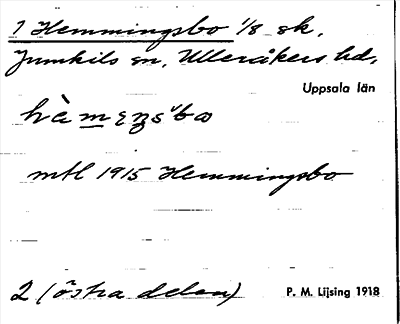 1 Hemmingsbo 1/8 sk.
Jumkils sn, Ulleråkers hd,
Uppsala län
mtl 1915 Hemmingsbo
2 (östra delen)
P. M. Lijsing 1918